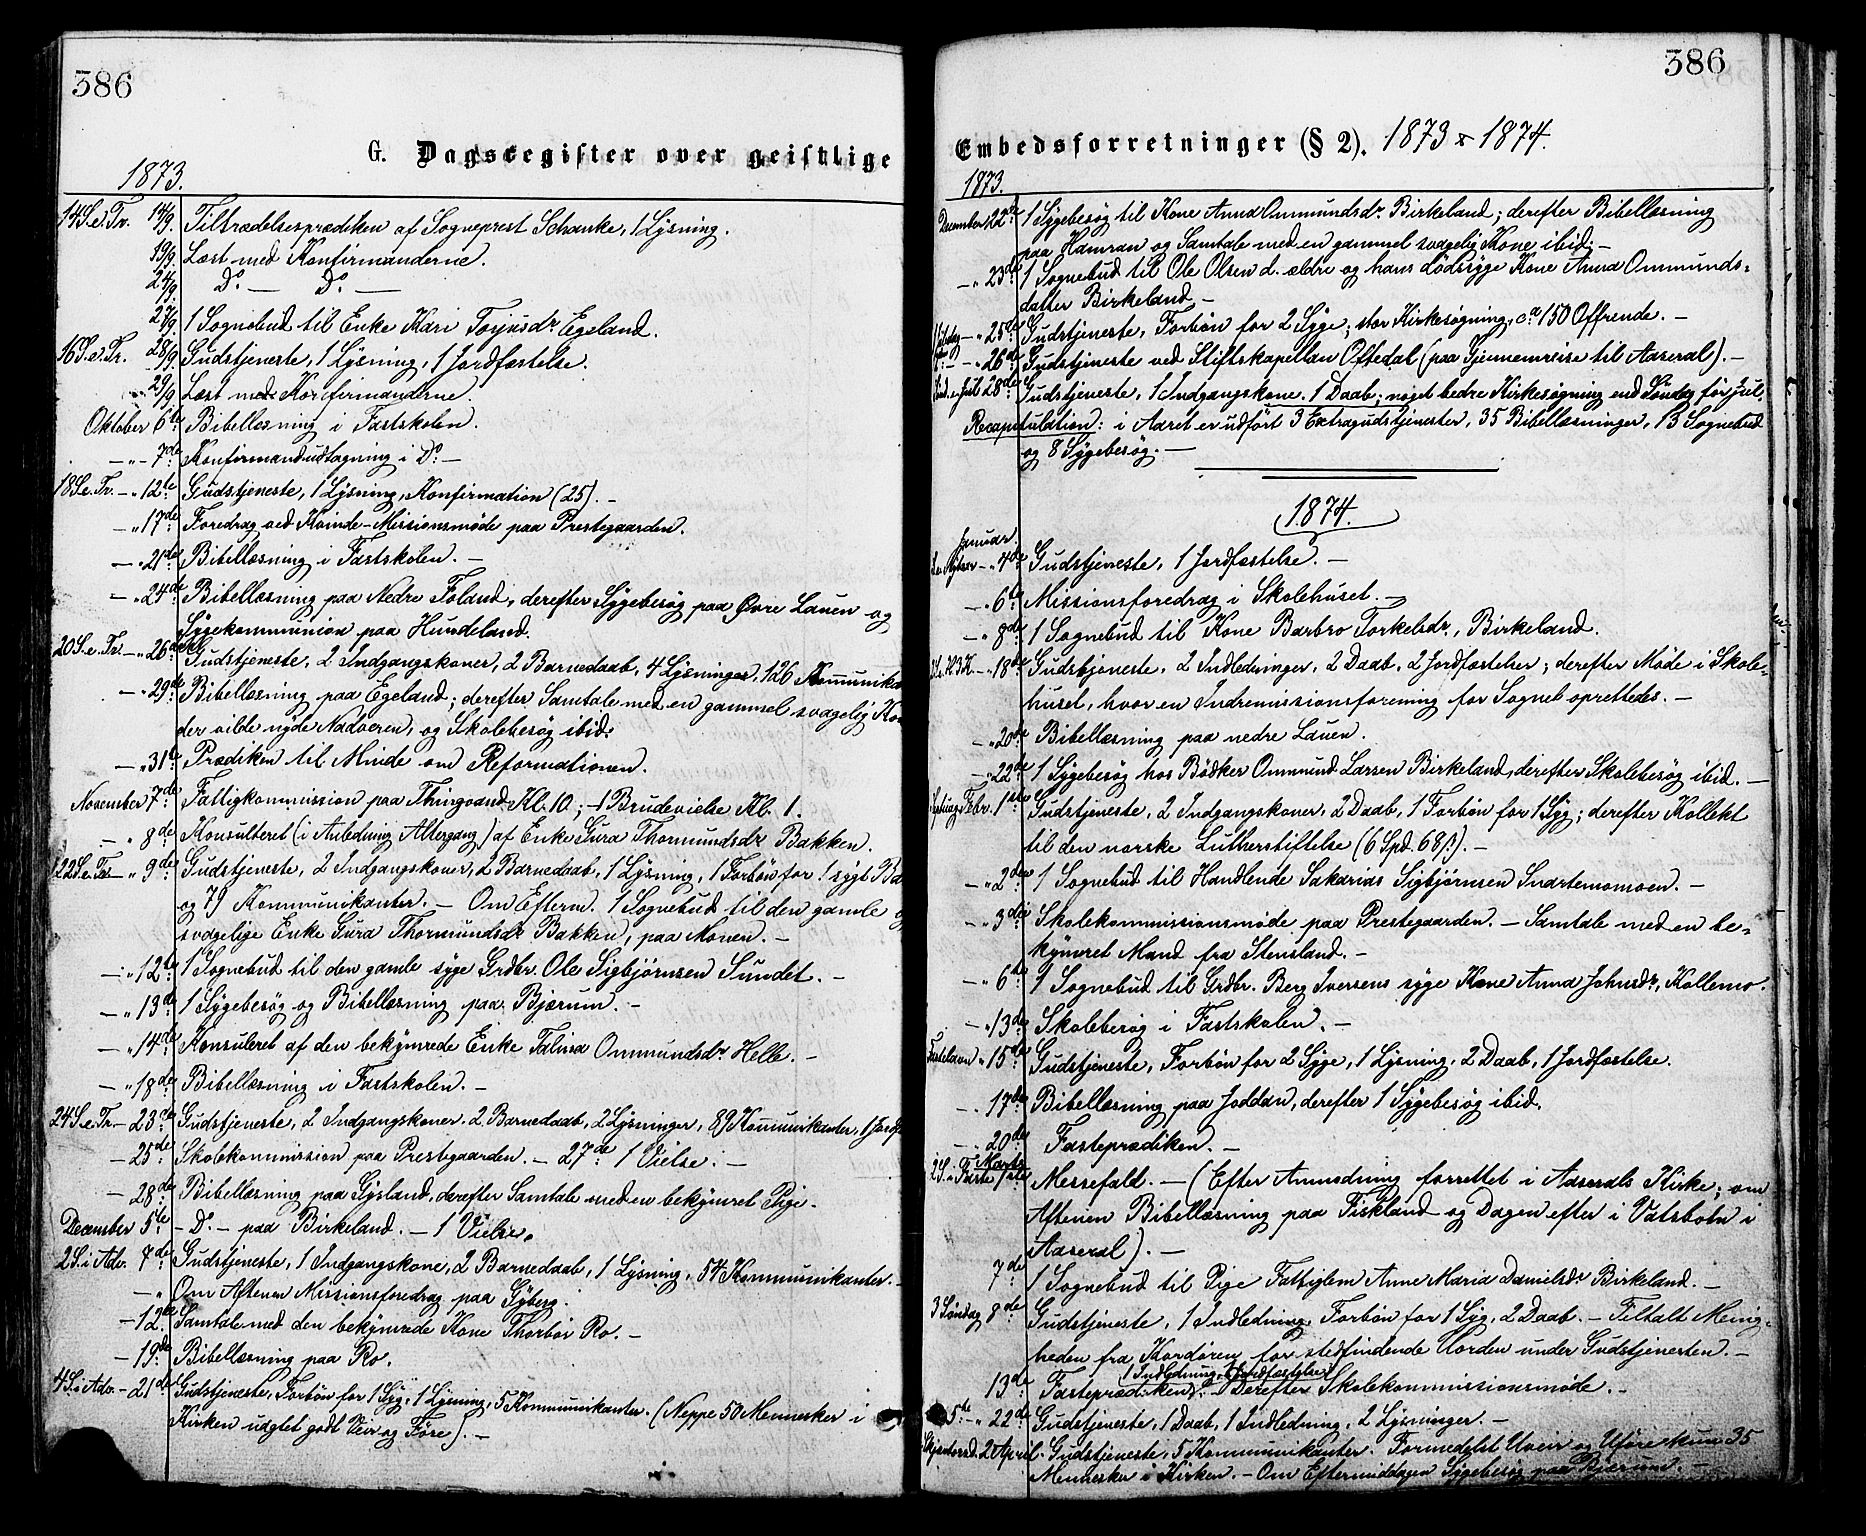 386
G. Dagsregister over geistlige
1873.
14 S. e. Tr. 14/9. Tiltrædelsesprædiken af Sogneprest Schanke, 1 Lysning.
19/9 Læst med Konfirmanderne.
24/9. Do. — Do. —
27/9. 1 Sognebud til Enke Kari Torjusdr. Egeland.
16 S. e. Tr. 28/9. Gudstjeneste, 1 Lysning, 1 Jordfæstelse.
29/9 Læst med Konfirmanderne.
Oktober 6te Bibellæsning i Fastskolen.
— " — 7de Konfirmandudtagning i Do. —
18 S. e. Tr. — " 12te Gudstjeneste, 1 Lysning, Konfirmation (25). —
— " 17de Foredrag ved Kvinde-Missionsmøde paa Prestegaarden.
— " 21de Bibellæsning i Fastskolen. —
— " 24de Bibellæsning paa Nedre Foland, derefter Sygebesøg paa Øvre Lauen og
Sygekommunion paa Hundeland.
20 S. e. Tr. — " 26de Gudstjeneste, 2 Indgangskoner, 2 Barnedaab, 4 Lysninger, 126 Kommunika
— " 29de Bibellæsning paa Egeland; derefter Samtale med en gammel svagelig Kon
der vilde nyde Nadveren, og Skolebesøg ibid.
— " 31te Prædiken til Minde om Reformationen.
November 7de Fattigkommission paa Thingvand Kl. 10.; — 1 Brudevielse Kl. 1.
— " 8de Konsulteret (i Anledning Altergang) af Enke Gura Thormundsdr Bakken.
22 S. e. Tr. — " 9de Gudstjeneste, 2 Indgangskoner, 2 Barnedaab, 1 Lysning, 1 Forbøn for 1 sygt Ba
og 79 Kommunikanter. — Om Efterm. 1 Sognebud til den gamle og
svagelige Enke Gura Thormundsdr Bakken, paa Monen. —
— " 12te 1 Sognebud til den gamle syge Grdbr. Ole Sigbjørnsen Sundet. —
— " 13de 1 Sygebesøg og Bibellæsning paa Bjærum. —
— " 14de Konsuleret af den bekymrede Enke Talisa Ommundsdr Helle. —
— " 18de Bibellæsning i Fastskolen. —
24 S. e. Tr. — 23de Gudstjeneste, 2 Indgangskoner, 2 Barnedaab, 2 Lysninger, 89 Kommunikanter, 1 Jordf
— 25de Skolekommission paa Prestegaarden. — 27de 1 Vielse. —
— 28de Bibellæsning paa Gysland, derefter Samtale med en bekymret Pige.
December 5te — Do. — paa Birkeland. — 1 Vielse.
2 S. i Adv. 7de Gudstjeneste, 1 Indgangskone, 2 Barnedaab, 1 Lysning, 54 Kommunikanter. —
— " Om Aftenen Missionsforedrag paa Gyberg.
— 12te Samtale med den bekymrede Kone Thorbør Ro. —
— 19de Bibellæsning paa Ro.
4 S. i Adv. — 21de Gudstjeneste, Forbøn for 1 Syg, 1 Lysning, 5 Kommunikanter. (Neppe 50 Mennesker i
Kirken uagtet godt Veir og Føre). —
386
Embedsforretninger (§ 2). 1873 & 1874.
1873.
December 22de 1 Sygebesøg til Kone Anna Ommundsdr. Birkeland; derefter Bibellæsning
paa Hamran og Samtale med en gammel svagelig Kone ibid. —
— " 23de 1 Sognebud til Ole Olsen d. ældre og hans dødssyge Kone Anna Ommunds-
datter Birkeland —
— " 25de Gudstjeneste, Forbøn for 2 Syge; stor Kirkesøgning, ca. 150 Offrende. —
— " 26de Gudstjeneste ved Stiftskapellan Oftedal (paa Gjennemreise til Aaseral). —
28de Gudstjeneste, 1 Indgangskone, 1 Daab; noget bedre Kirkesøgning end Søndag før Jul.
Recapitulation: i Aaret er udført 3 Extragudstjenester, 35 Bibellæsninger, 13 Sognebud
og 8 Sygebesøg. —
1874.
Januar.
S. e. Nytaar — " 4de Gudstjeneste, 1 Jordfæstelse. —
— " 6te Missionsforedrag i Skolehuset. —
— " 8de 1 Sognebud til Kone Barbro Torkelsdr., Birkeland.
2 S. e. H3K. — " 18de Gudstjeneste, 2 Indledninger, 2 Daab, 2 Jordfæstelser; derefter Møde i Skole-
huset, hvor en Indremissionsforening for Sognet oprettedes. —
— " 20de Bibellæsning paa nedre Lauen.
— " 22de 1 Sygebesøg hos Bødker Ommund Larsen Birkeland, derefter Skolebesøg ibid. —
Febr. 1ste Gudstjeneste, 2 Indgangskoner, 2 Daab, 1 Forbøn for 1 Syg; derefter Kollekt
til den norske Lutherstiftelse (6 Spd. 68 β). —
— " 2den 1 Sognebud til Handlende Sakarias Sigbjørnsen Snartemomoen. —
— " 3die Skolekommissionsmøde paa Prestegaarden. — Samtale med en be-
kymret Mand fra Stensland. —
— " 6te 1 Sognebud til Grdbr. Berg Iversens syge Kone Anna Johnsdr., Kollemo.
— " 13de Skolebesøg i Fastskolen. —
Fastelavn " 15de Gudstjeneste, Forbøn for 2 Syge, 1 Lysning, 2 Daab, 1 Jordfæstelse.
— " 17de Bibellæsning paa Joddan, derefter 1 Sygebesøg ibid.
— " 20de Fasteprædiken. —
Marts
2 S. i Faste 1ste Messefald. — (Efter Anmodning forrettet i Aaserals Kirke; om
Aftenen Bibellæsning paa Fiskland og Dagen efter i Vatsbotn i
Aaseral). —
7de 1 Sognebud til Pige Fattiglem Anne Maria Danielsdr Birkeland. —
3 Søndag 8de Gudstjeneste, 1 Indledning, Forbøn for 1 Syg, 2 Daab. — Tiltalt Menig-
heden fra Kordøren for stedfindende Uorden under Gudstjenesten. —
1 Indledning, 1 Jordfæstelse
13de Fasteprædiken). — Derefter Skolekommissionsmøde. —
5te — " 22de Gudstjeneste, 1 Daab, 1 Indledning, 2 Lysninger. —
Skjærtorsd. 2 April. Gudstjeneste, 5 Kommunikanter. Formedelst Uveir og Uføre kun 35
Mennesker i Kirken. — Om Eftermiddagen Sygebesøg paa Bjærum. —